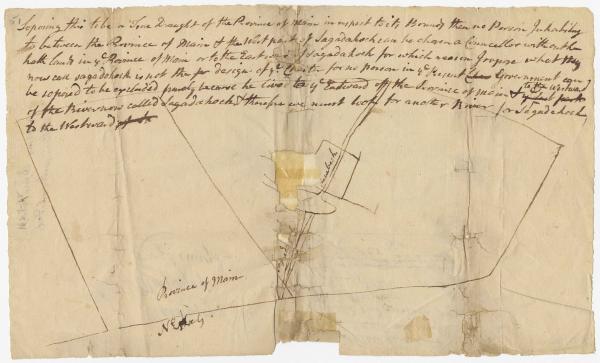 Suposing this to be a True Draught of the Province of main in respect to its Bounds then no Person Inhabiting
to between the Province of Main & the West part of Sagadahock can be chosen a Councellor without he
hath lands in ye Province of Main or to the East of Sagadahock for which reason I supose what they
now call sagadahock is not the design of ye Charter for no Person in ye Present Government can
be suposed to be excluded purely because he lives to ye Eastward of the Province of main & to the Westward
of the River now called Sagadahock therefore we must look for another River for Sagadahock
to the Westward
Province of Main